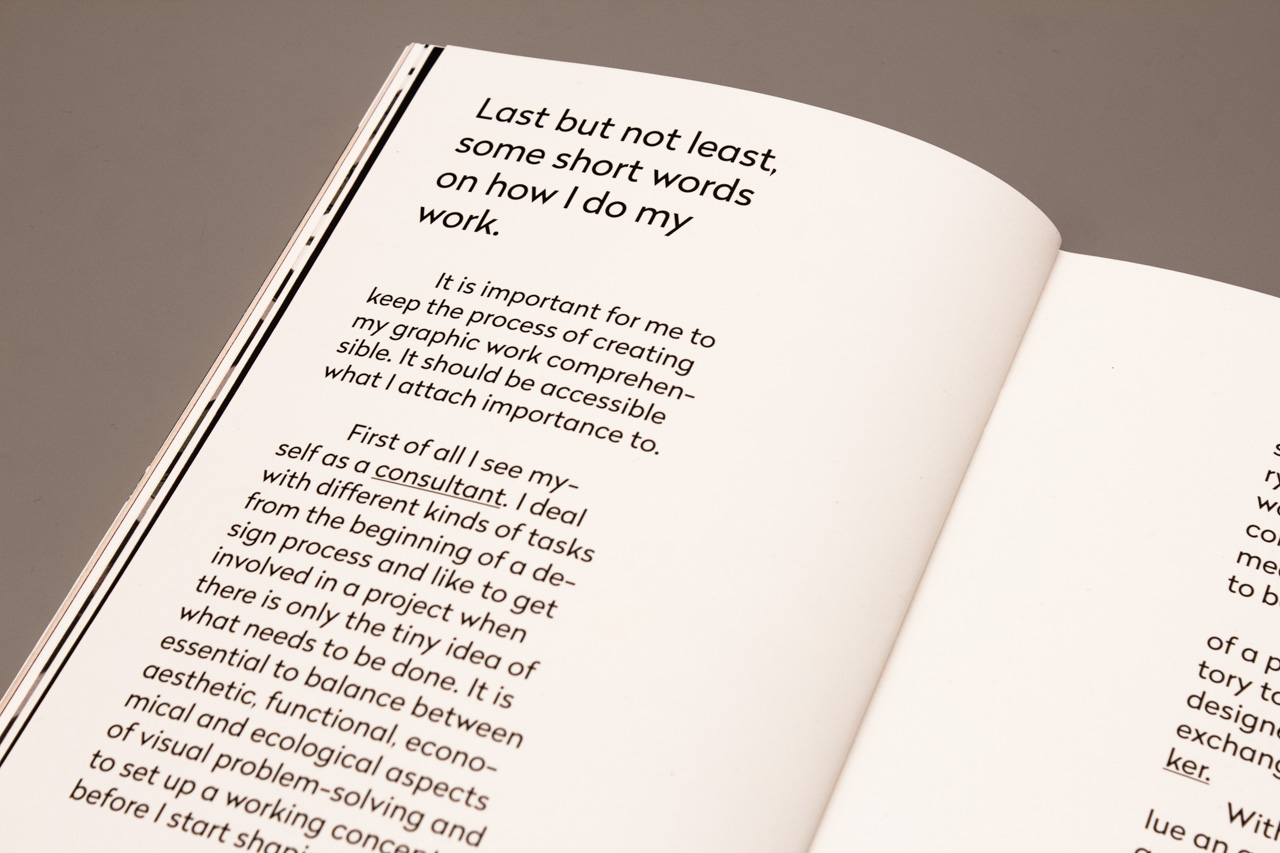 Last but not least,
some short words
on how I do my
work.
It is important for me to
keep the process of creating
my graphic work comprehen-
sible. It should be accessible
what I attach importance to.
First of all I see my-
self as a consultant. I deal
with different kinds of tasks
from the beginning of a de-
sign process and like to get
involved in a project when
there is only the tiny idea of
what needs to be done. It is
essential to balance between
aesthetic, functional, econo-
mical and ecological aspects
of visual problem-solving and
to set up a working concept
before I start
to b
of a p
tory to
ker.
lue an